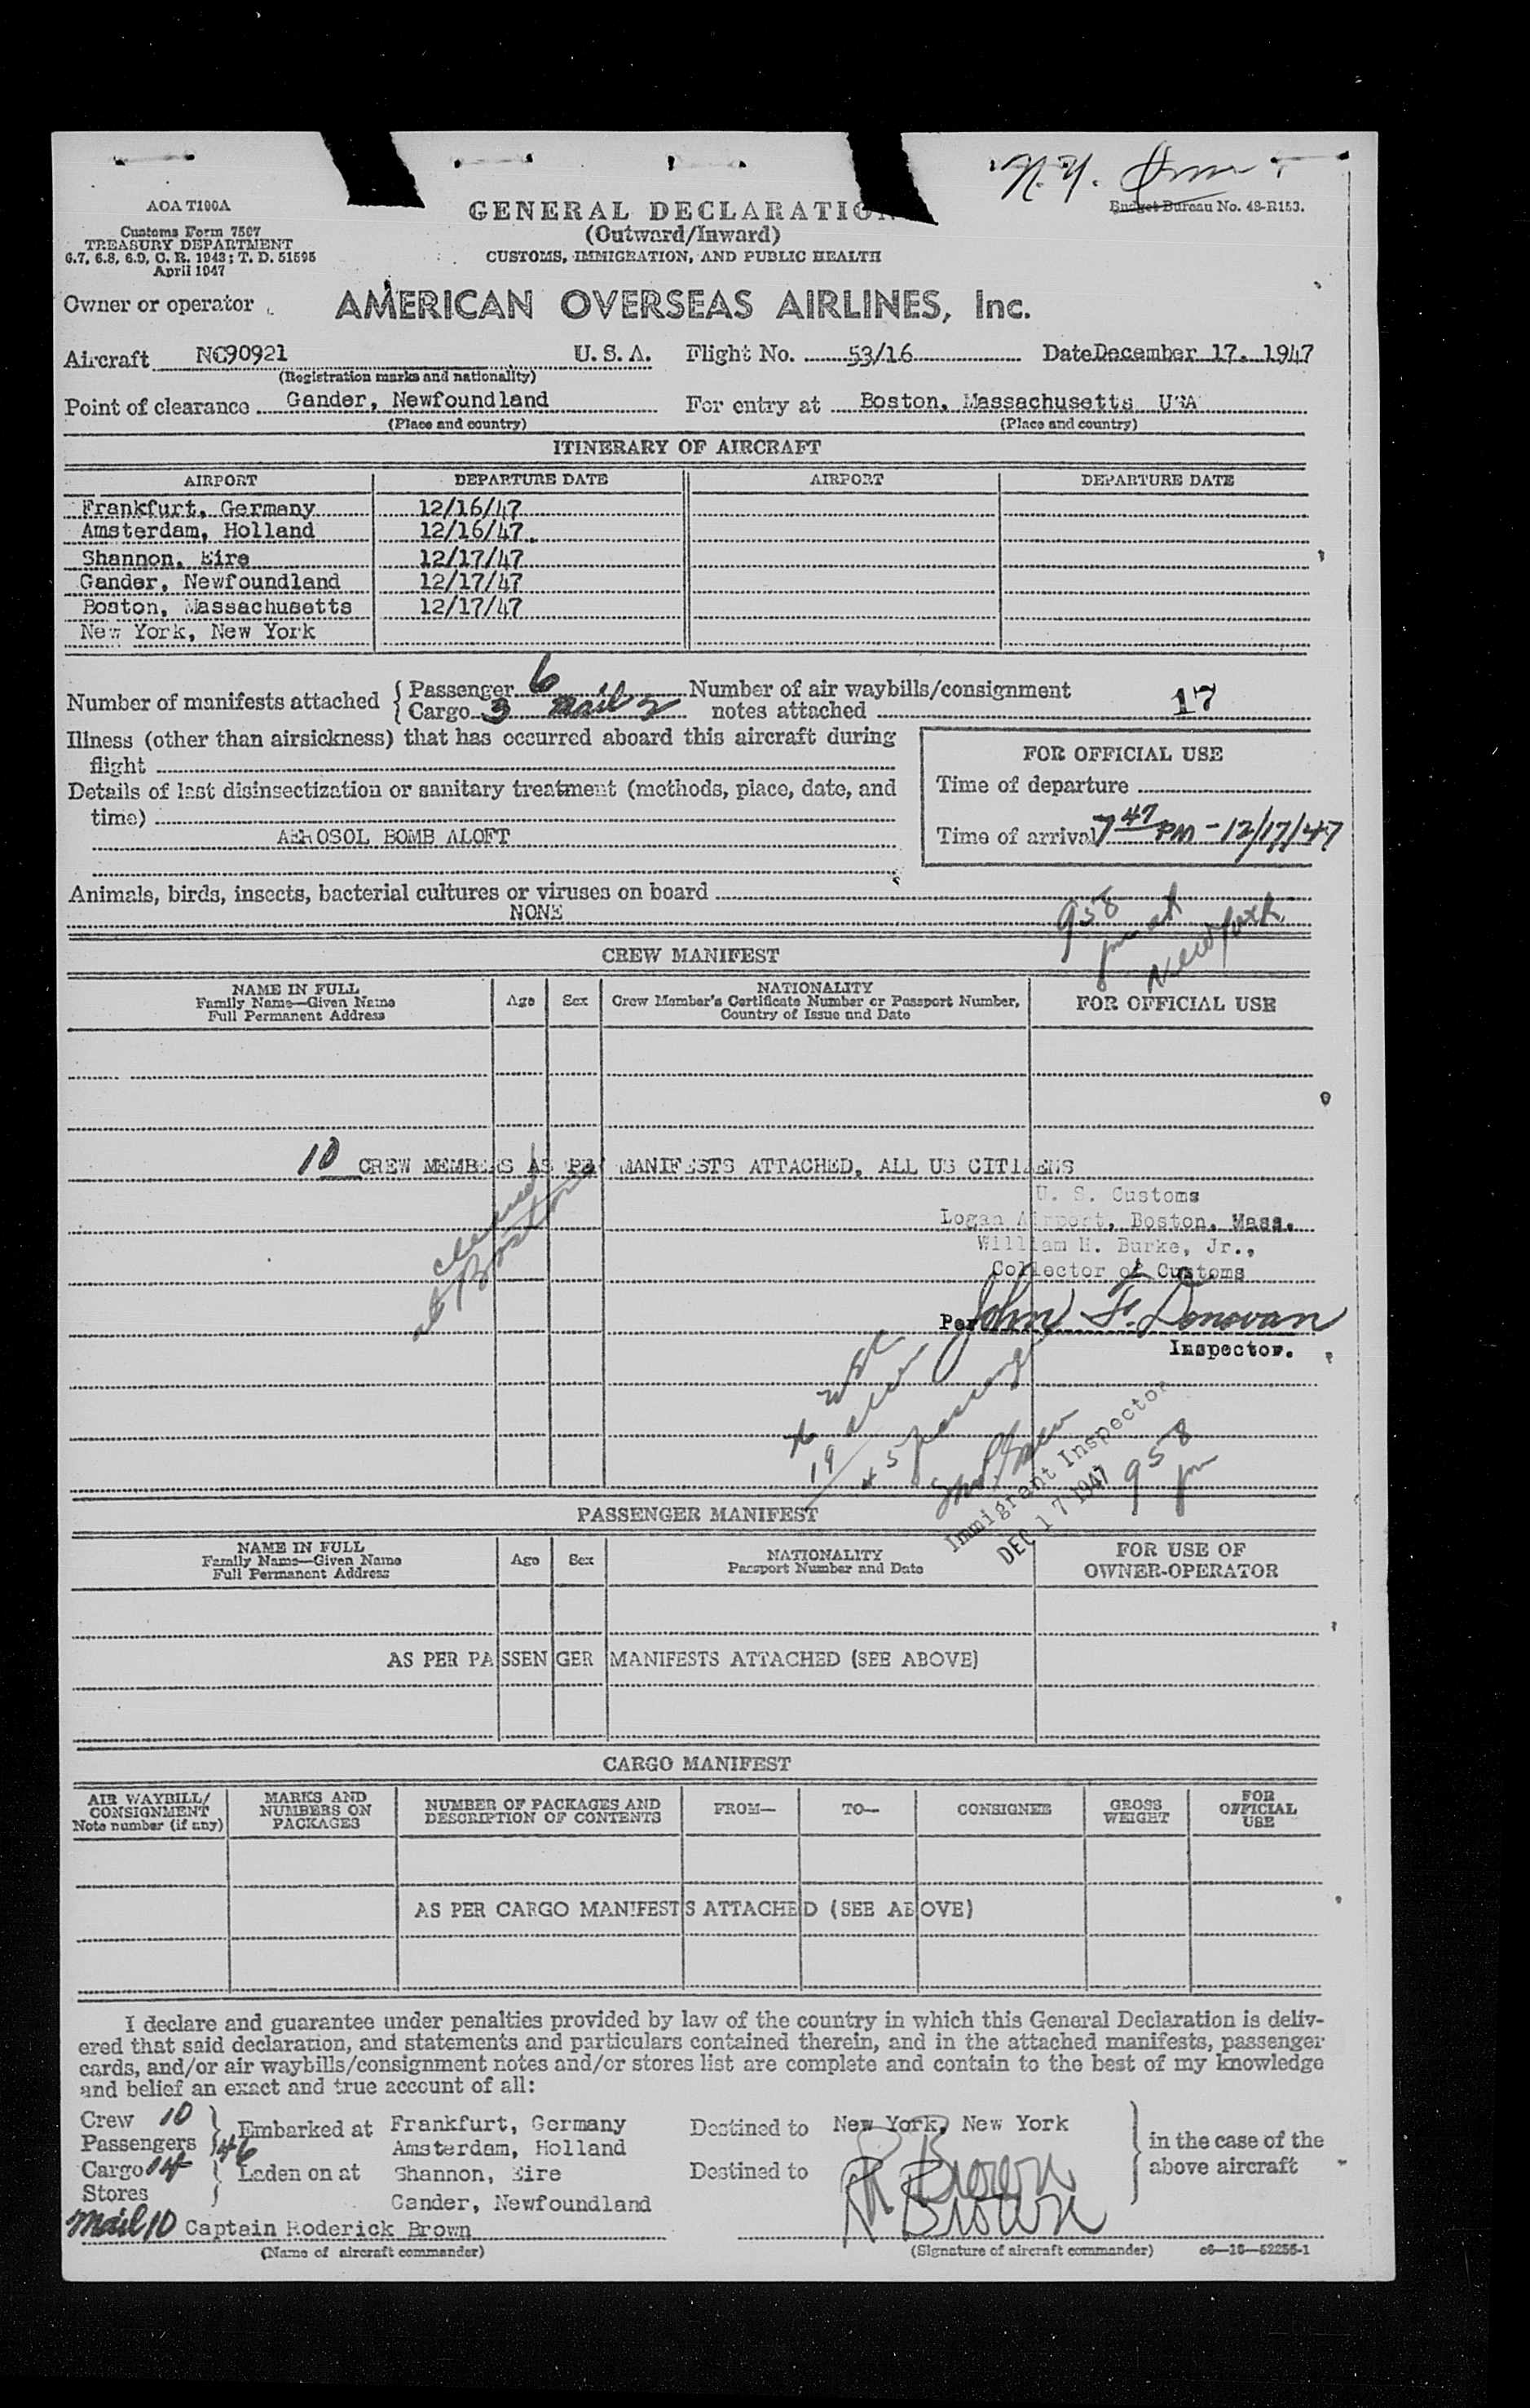 N.Y.
AOA T100A
Customs Form 7507
TREASURY DEPARTMENT
6.7, 6.8, 6.9, C. R. 1943; T. D. 51595
April 1947
GENERAL DECLARATION
(Outward/Inward)
CUSTOMS, IMMIGRATION, AND PUBLIC HEALTH
Budget Bureau No. 48-R153.
Owner or operator AMERICAN OVERSEAS AIRLINES, Inc.
Aircraft NC90921 U. S. A. Flight No. 53/16 Date December 17. 1947
(Registration marks and nationality)
Point of clearance Gander, Newfoundland For entry at Boston, Massachusetts USA
(Place and country) (Place and country)
ITINERARY OF AIRCRAFT
AIRPORT DEPARTURE DATE AIRPORT DEPARTURE DATE
Frankfurt, Germany 12/16/47
Amsterdam, Holland 12/16/47.
Shannon, Eire 12/17/47
Gander, Newfoundland 12/17/47
Boston, Massachusetts 12/17/47
New York, New York
Number of manifests attached { Passenger 6 Number of air waybills/consignment
Cargo 3 Mail 2 notes attached 17
Illness (other than airsickness) that has occurred aboard this aircraft during
flight
Details of last disinsectization or sanitary treatment (methods, place, date, and
time)
AEROSOL BOMB ALOFT
FOR OFFICIAL USE
Time of departure
Time of arrival 7 47 PM - 12/17/47
Animals, birds, insects, bacterial cultures or viruses on board
NONE
958
pm at
New York
CREW MANIFEST
NAME IN FULL
Family Name—Given Name
Full Permanent Address
Age Sex
NATIONALITY
Crew Member's Certificate Number or Passport Number,
Country of Issue and Date
FOR OFFICIAL USE
10 CREW MEMBERS AS PER MANIFESTS ATTACHED, ALL US CITIZENS
cleared
at Boston
U. S. Customs
Logan Airport, Boston, Mass.
William H. Burke, Jr.,
Collector of Customs
Per John F. Donovan
Inspector.
Immigrant Inspector
DEC 17 1947
958
pm
PASSENGER MANIFEST
NAME IN FULL
Family Name—Given Name
Full Permanent Address
Age Sex
NATIONALITY
Passport Number and Date
FOR USE OF
OWNER-OPERATOR
AS PER PASSENGER MANIFESTS ATTACHED (SEE ABOVE)
CARGO MANIFEST
AIR WAYBILL/
CONSIGNMENT
Note number (if any)
MARKS AND
NUMBERS ON
PACKAGES
NUMBER OF PACKAGES AND
DESCRIPTION OF CONTENTS
FROM— TO— CONSIGNEE
GROSS
WEIGHT
FOR
OFFICIAL
USE
AS PER CARGO MANIFESTS ATTACHED (SEE ABOVE)
I declare and guarantee under penalties provided by law of the country in which this General Declaration is deliv-
ered that said declaration, and statements and particulars contained therein, and in the attached manifests, passenger
cards, and/or air waybills/consignment notes and/or stores list are complete and contain to the best of my knowledge
and belief an exact and true account of all:
Crew 10
Passengers 46
Cargo 14
Stores
Mail 10
Embarked at Frankfurt, Germany
Amsterdam, Holland
Laden on at Shannon, Eire
Gander, Newfoundland
Destined to New York, New York
Destined to
in the case of the
above aircraft
R Brown
R Brown
Captain Roderick Brown
(Name of aircraft commander) (Signature of aircraft commander) c6—16—52255-1